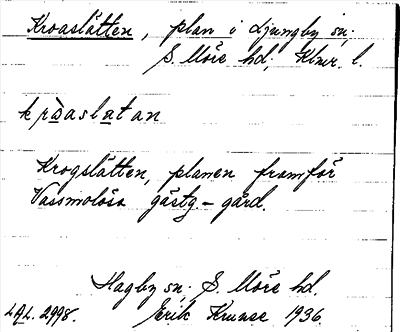 Kroaslätten, plan i Ljungby sn;
S. Möre hd; Klmr. l.
kròaslatan
Krogslätten, planen framför
Vassmolösa gästg-gård.
Hagby sn. S. Möre hd.
LAL. 2998. Erik Krunse 1936